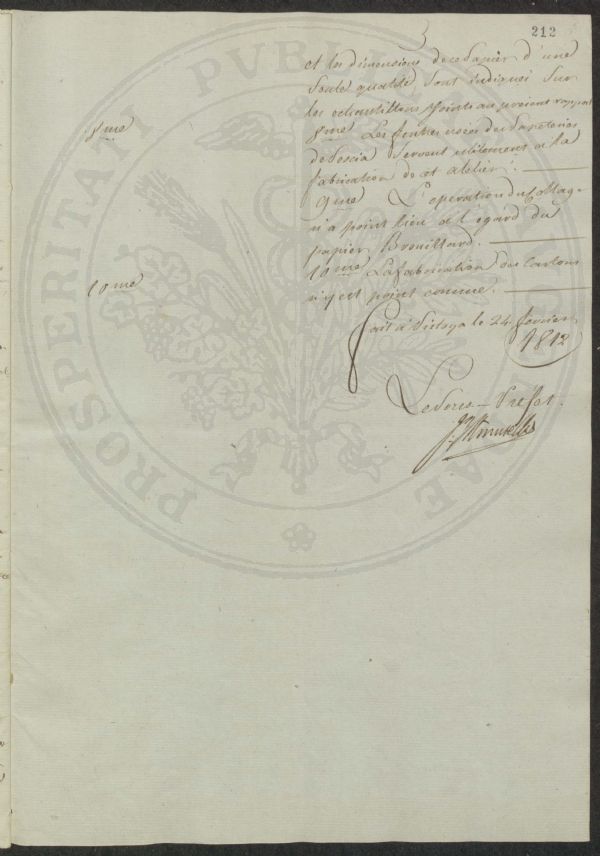 212
et les dimensions de ce Papier d'une
seule qualité sont indiqués sur
les echantillons joints au present rapport
8me
8me Les feutres usées des Papeteries
de Pescia servent utilement a la
fabrication de cet atelier.
9me L'operation du Collage
n'a point lieu a l'egard du
papier Brouillard.
10me
10me La fabrication des Cartons
n'y est point connue.
Fait à Pistoya le 24 fevrier
1812
Le Sous-Prefet.
PROSPERITATI PVBLICAE